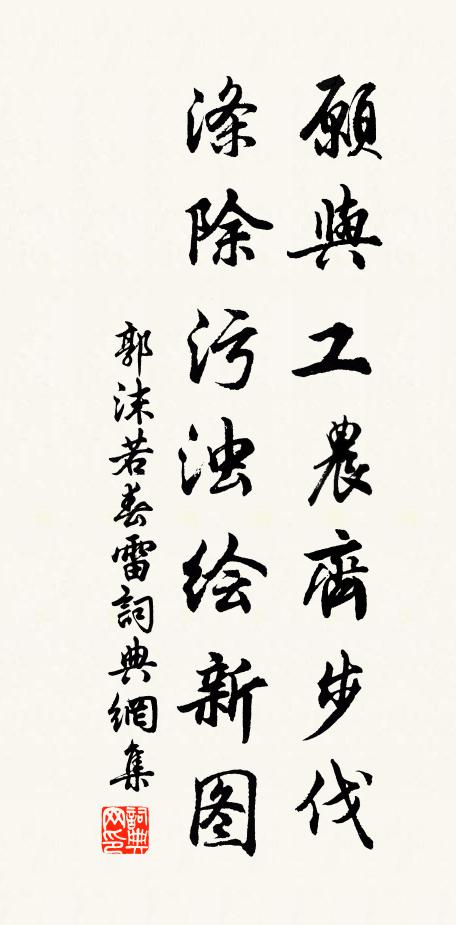 願與工農齊步伐
涤除污浊绘新图
郭沫若春雷詞典網集
詞典网印